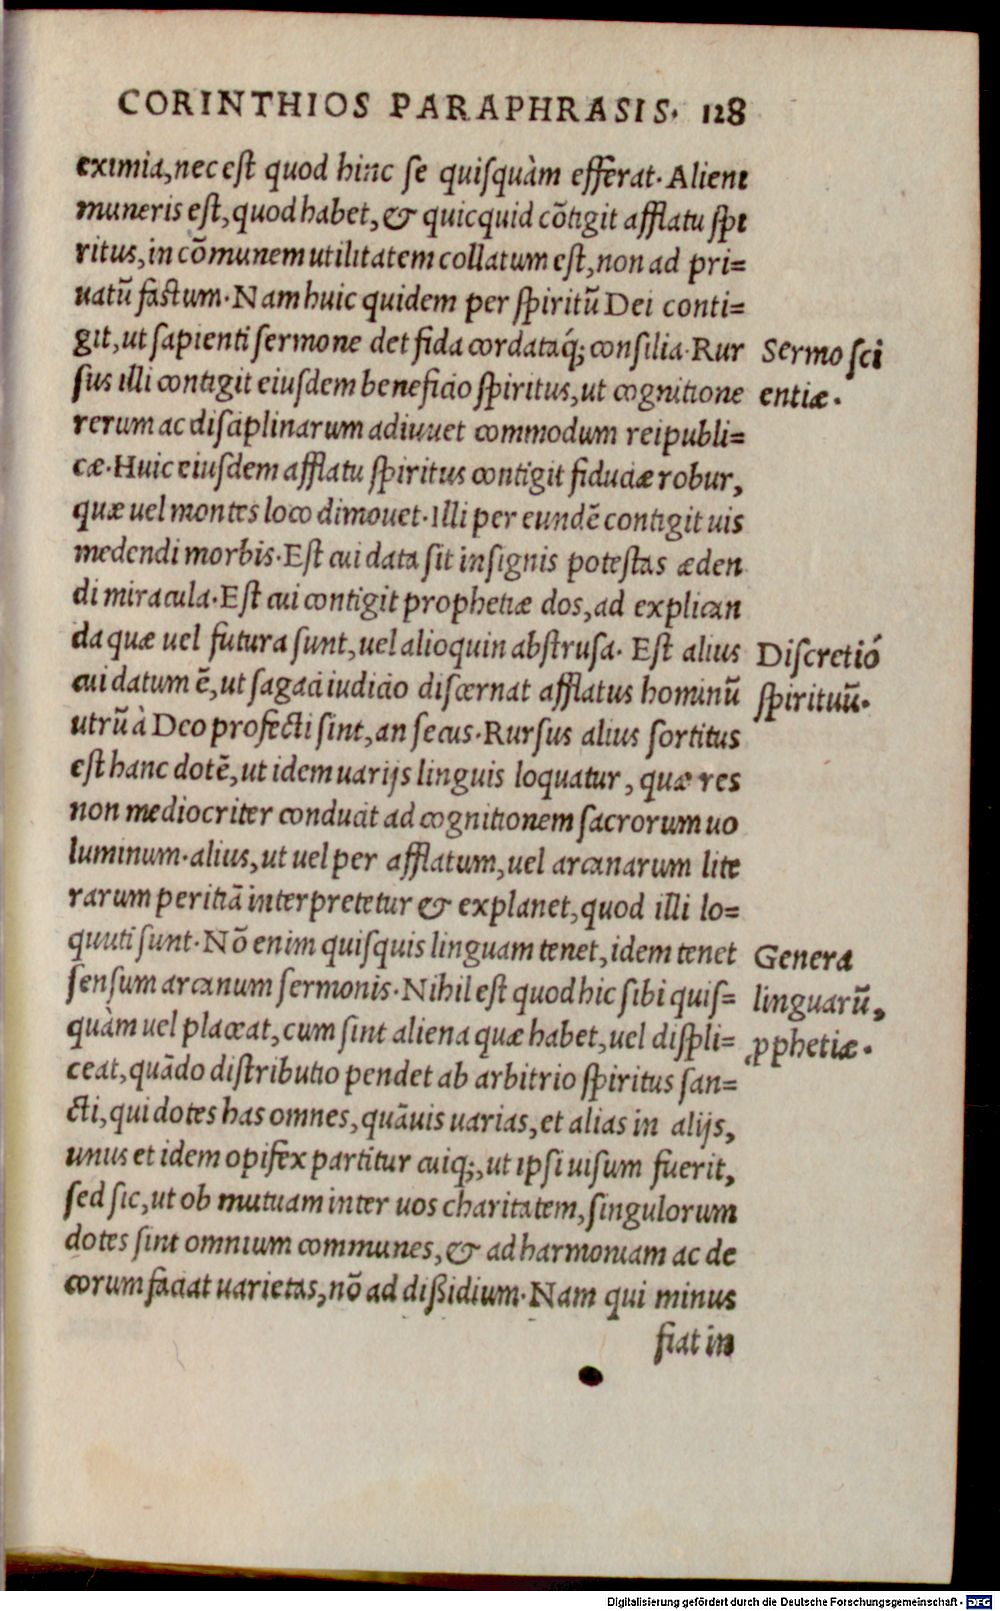 CORINTHIOS PARAPHRASIS. 128
eximia, nec est quod hinc se quisquàm efferat. Alieni
muneris est, quod habet, & quicquid cõtigit afflatu spi
ritus, in cõmunem utilitatem collatum est, non ad pri=
uatũ factum. Nam huic quidem per spiritũ Dei conti=
git, ut sapienti sermone det fida cordataq́; consilia. Rur
sus illi contigit eiusdem beneficio spiritus, ut cognitione
rerum ac disciplinarum adiuuet commodum reipubli=
cæ. Huic eiusdem afflatu spiritus contigit fiduciæ robur,
quæ uel montes loco dimouet. Illi per eundẽ contigit uis
medendi morbis. Est cui data sit insignis potestas æden
di miracula. Est cui contigit prophetiæ dos, ad explican
da quæ uel futura sunt, uel alioquin abstrusa. Est alius
cui datum ẽ, ut sagaci iudicio discernat afflatus hominũ
utrũ à Deo profecti sint, an secus. Rursus alius sortitus
est hanc dotẽ, ut idem uarijs linguis loquatur, quæ res
non mediocriter conducit ad cognitionem sacrorum uo
luminum. alius, ut uel per afflatum, uel arcanarum lite
rarum peritiã interpretetur & explanet, quod illi lo=
quuti sunt. Nõ enim quisquis linguam tenet, idem tenet
sensum arcanum sermonis. Nihil est quod hic sibi quis=
quàm uel placeat, cum sint aliena quæ habet, uel displi=
ceat, quãdo distributio pendet ab arbitrio spiritus san=
cti, qui dotes has omnes, quãuis uarias, et alias in alijs,
unus et idem opifex partitur cuiq;, ut ipsi uisum fuerit,
sed sic, ut ob mutuam inter uos charitatem, singulorum
dotes sint omnium communes, & ad harmoniam ac de
corum faciat uarietas, nõ ad dißidium. Nam qui minus
fiat in
Sermo sci
entiæ.
Discretió
spirituũ.
Genera
linguarũ,
ꝓphetiæ.
Digitalisierung gefördert durch die Deutsche Forschungsgemeinschaft - DFG